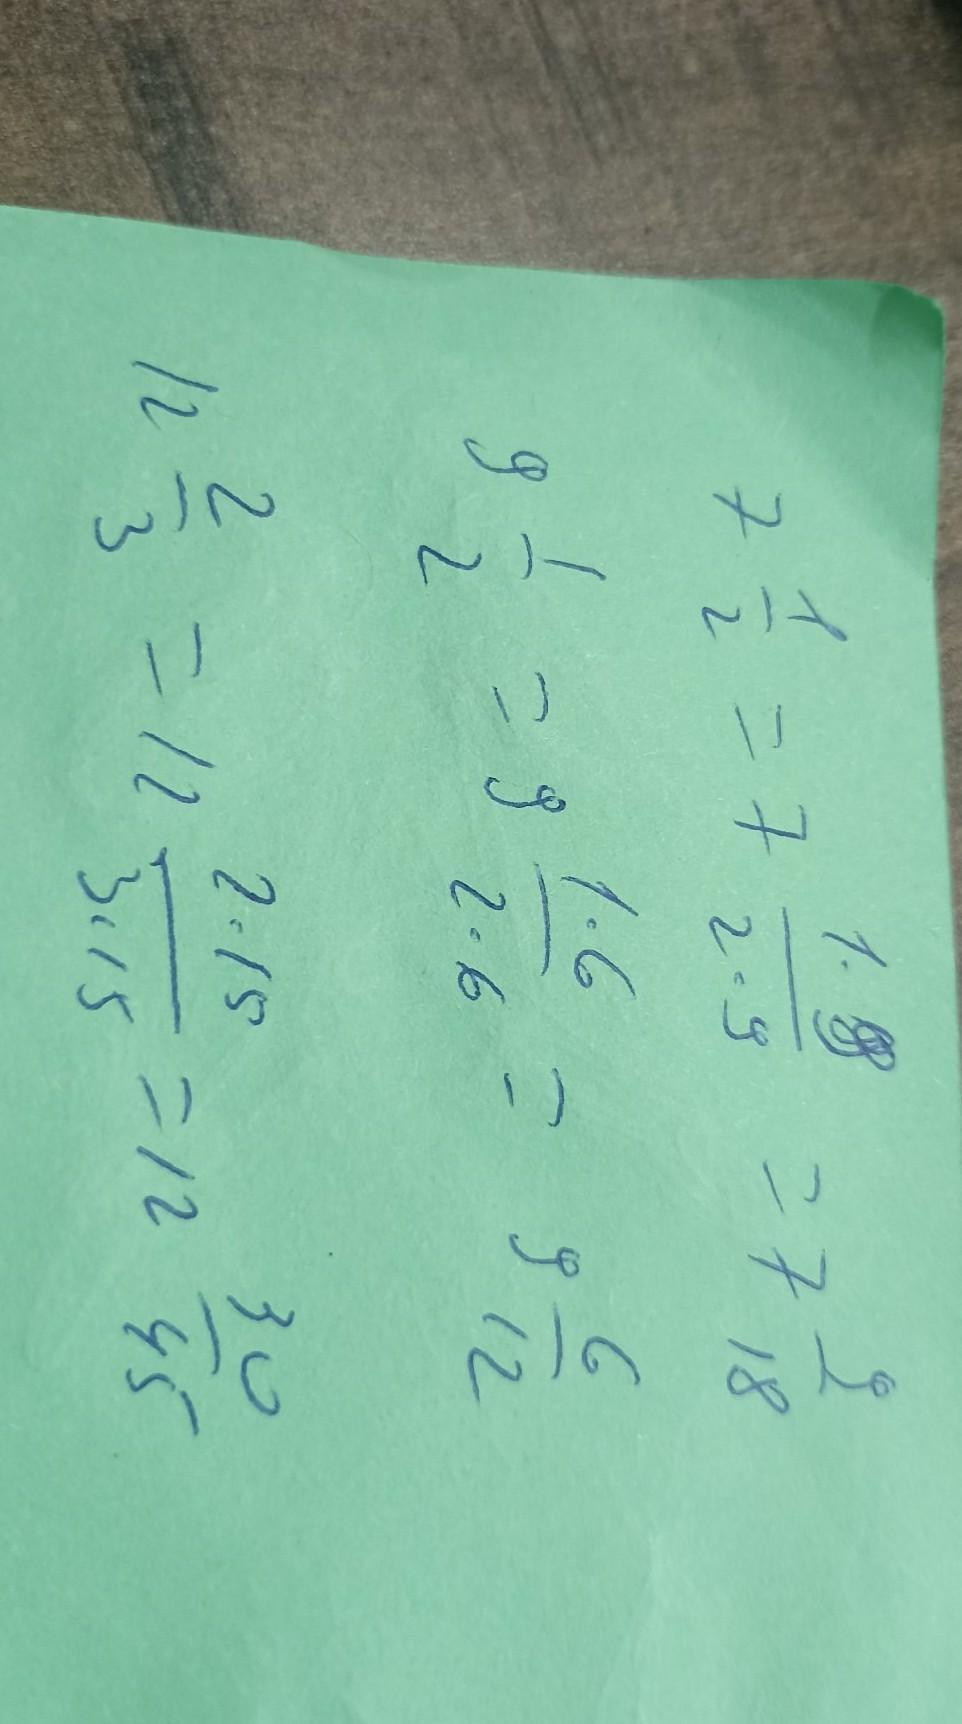 7 1/2 = 7 1·9/2·9 = 7 9/18
9 1/2 = 9 1·6/2·6 = 9 6/12
12 2/3 = 12 2·15/3·15 = 12 30/45